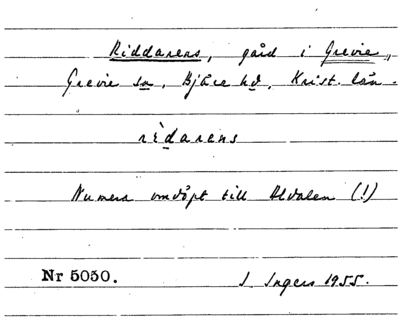 Riddarens, gård i Grevie,
Grevie sn, Bjäre hd, Krist. län.
rèdarens
Numera omdöpt till Aldalen (!)
Nr 5050. I. Ingers 1955.